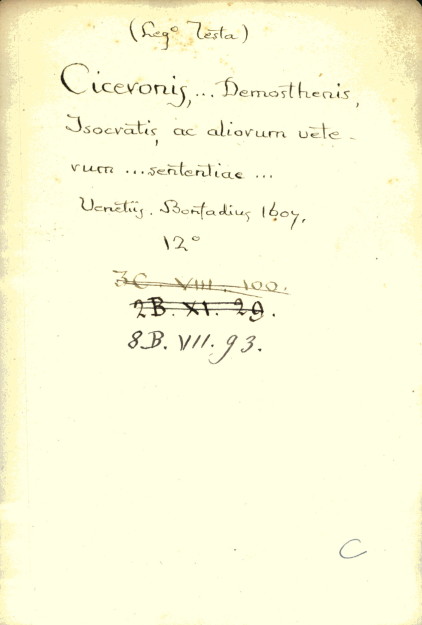 (Leg° Testa)
Ciceronis, ... Demosthenis,
Isocratis, ac aliorum vete-
rum ... sententiae ...
Venetiis. Bonfadius 1607.
12°
3C. VIII. 100.
2B. XI. 29.
8.B. VII. 93.
C